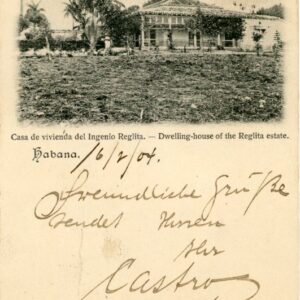 Casa de vivienda del Ingenio Reglita. — Dwelling-house of the Reglita estate.
Habana. 16/2/04.
Freundliche Grüße
sendet Ihnen
Ihr
Castro